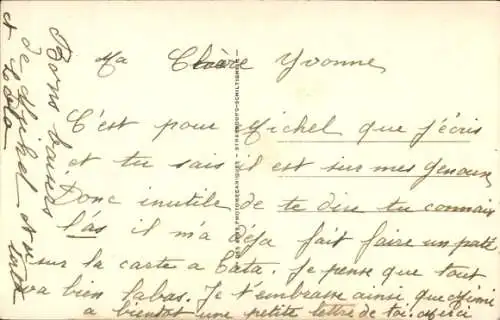 Ma Chère Yvonne
C'est pour Michel que j'écris
et tu sais il est sur mes genoux
Donc inutile de te dire tu connais
l'as il m'a déja fait faire un paté
sur la carte a Tata. Je pense que tout
va bien labas. Je t'embrasse ainsi que Mimi
a bientot une petite lettre de toi. merci
Bons baisers
de Michel
et Lola
PHOTOMECANIQUES - STRASBOURG-SCHILTIGHEIM